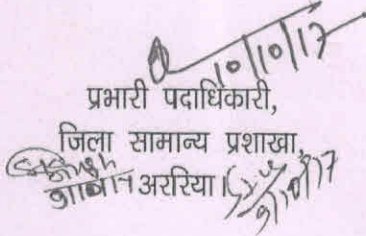 10/10/17
प्रभारी पदाधिकारी,
जिला सामान्य प्रशाखा,
अररिया।
9/10/17